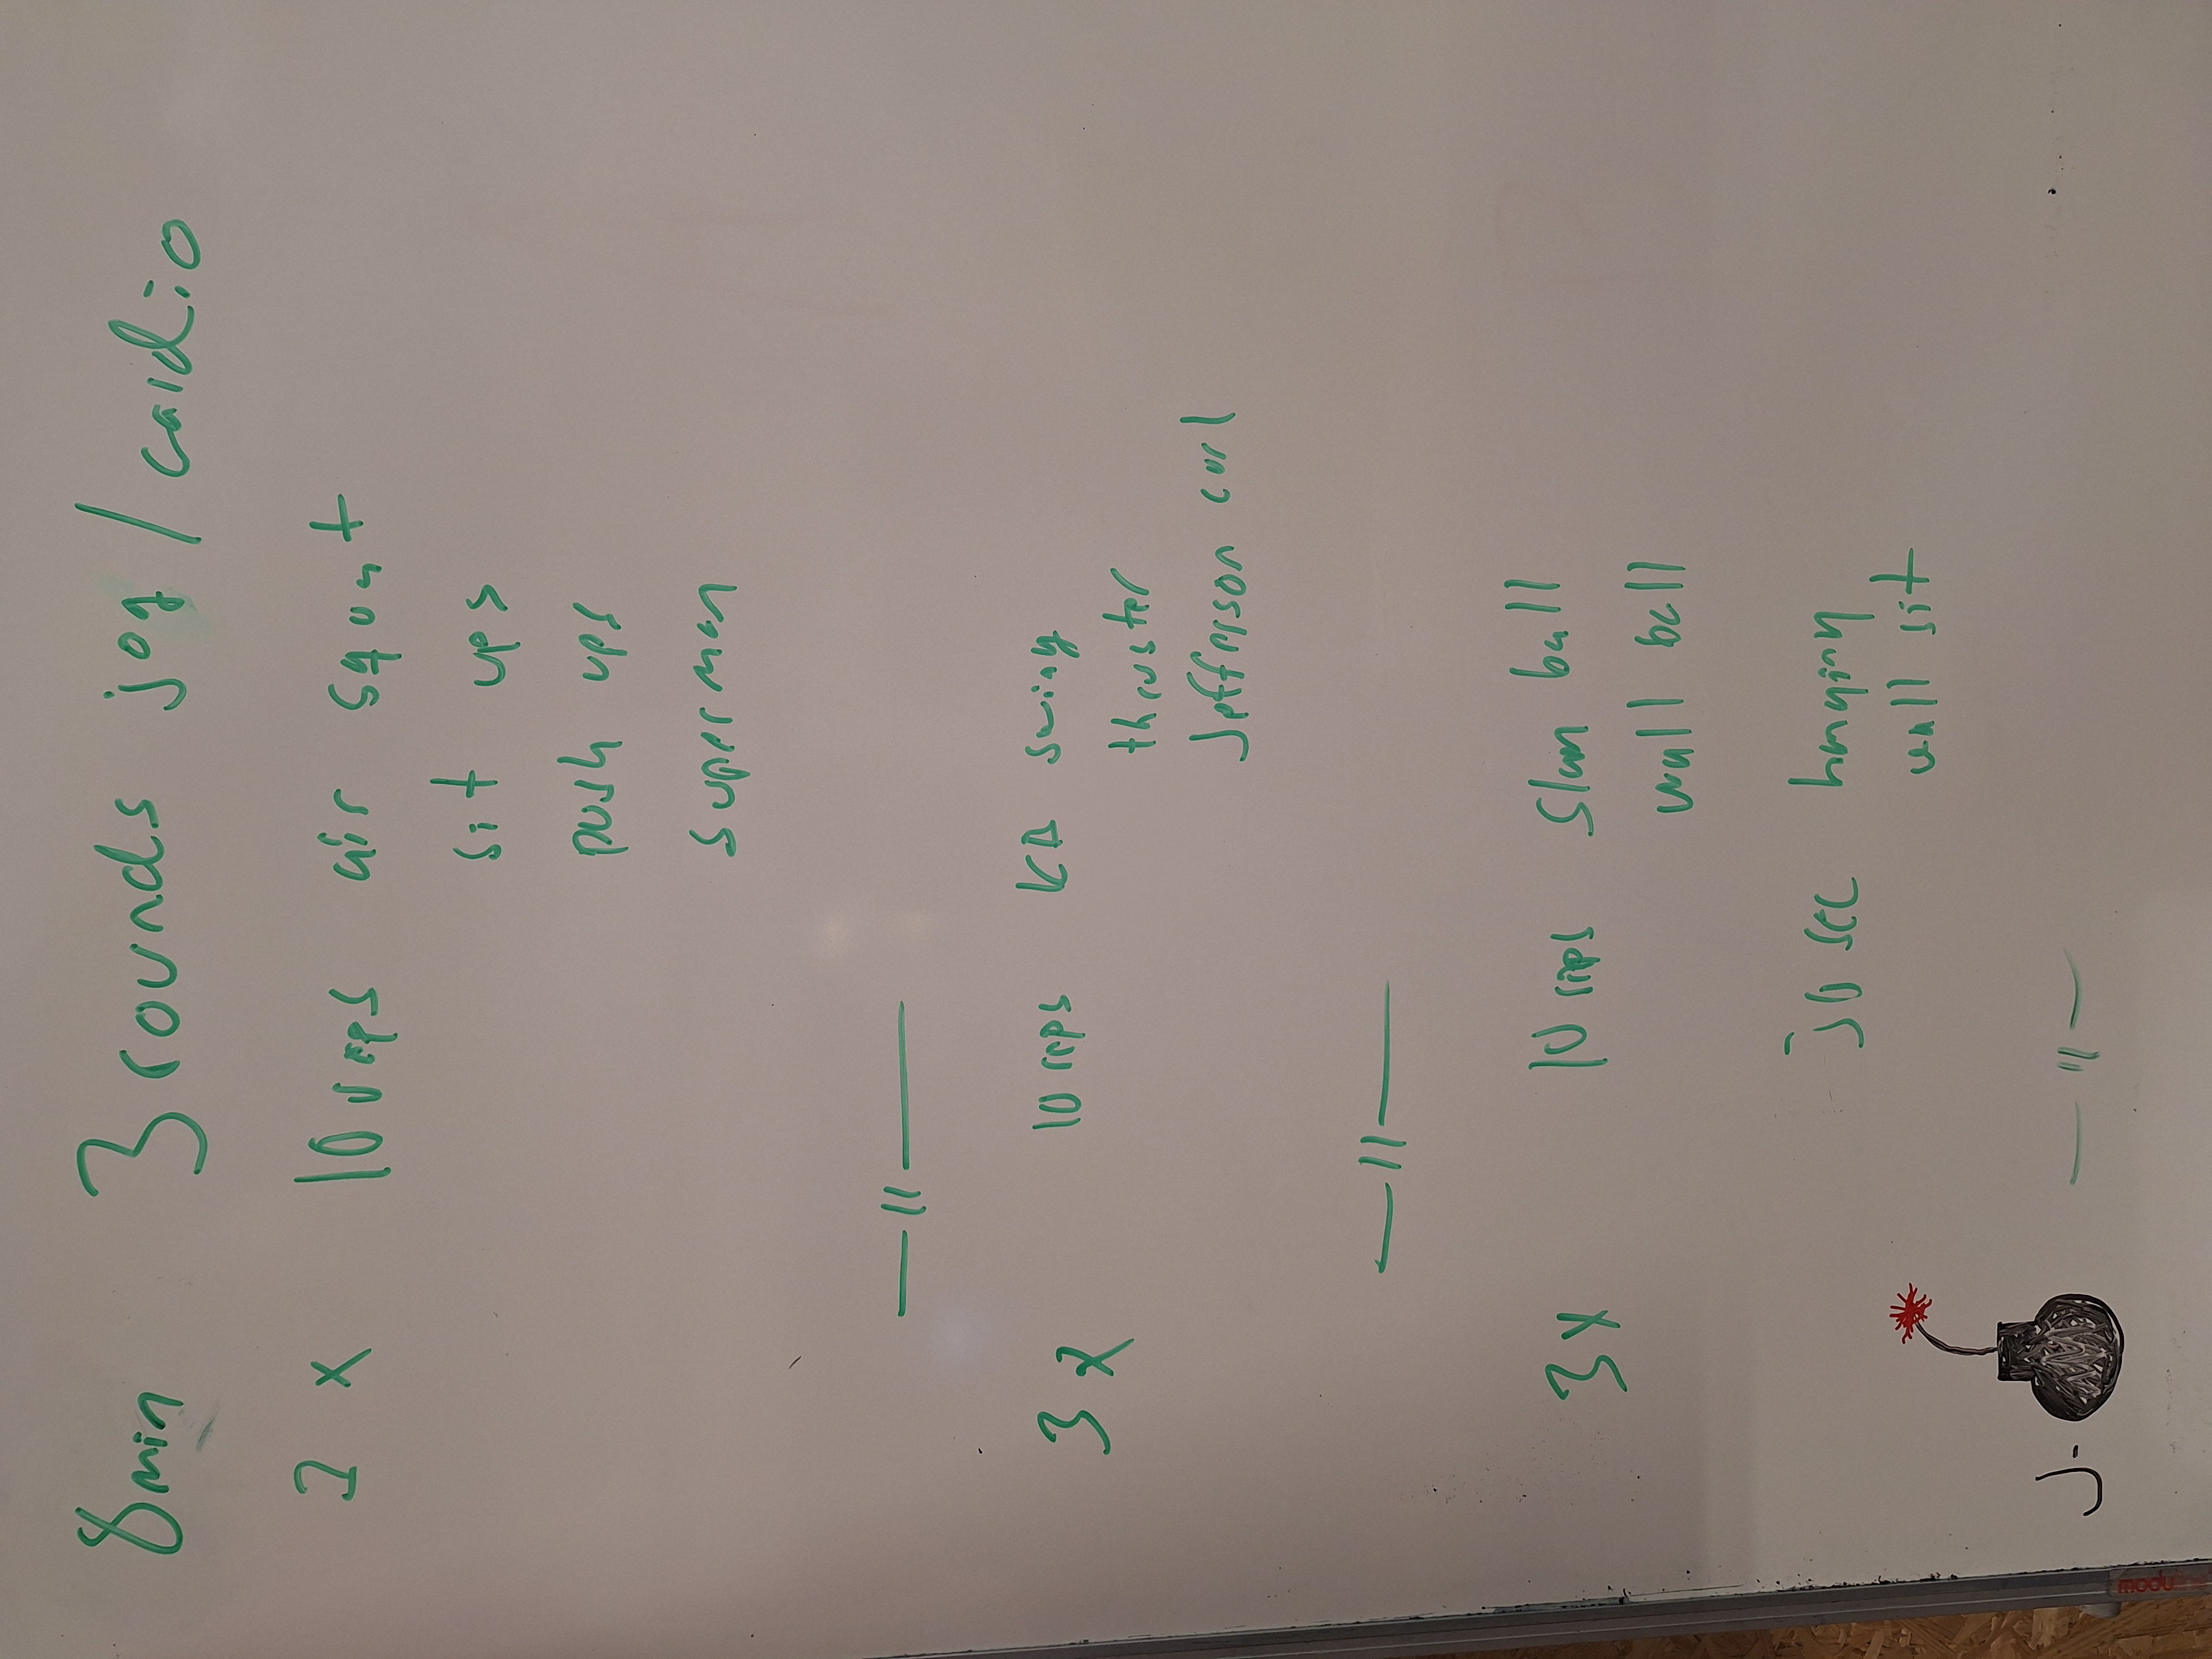 8min 3 rounds jog / cardio
2 x 10 reps air squat
sit ups
push ups
superman
— 11 —
3 x 10 reps KB swing
thruster
Jefferson curl
— 11 —
3x 10 reps Slam ball
wall ball
30 sec hanging
wall sit
J- — 11 —
modul